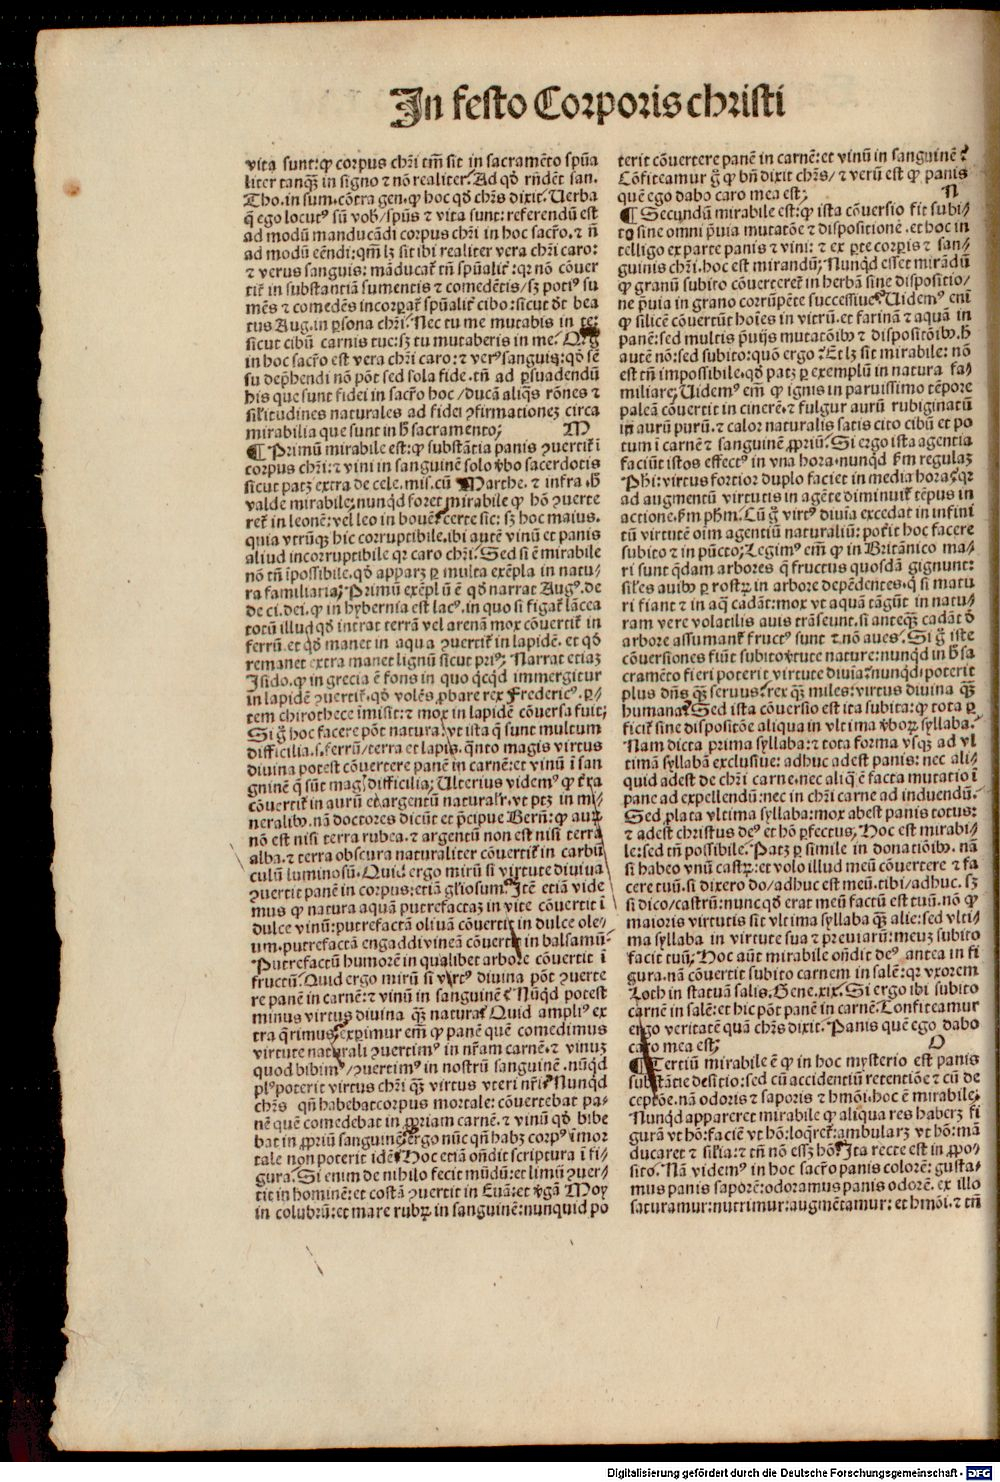 In festo Corporis christi
vita sunt: ꝙ corpus chr̄i tm̄ sit in sacramēto spūa
liter tanqȝ in signo ⁊ nō realiter. Ad qd̄ rn̄det san.
Tho. in sum. cōtra gen. ꝙ hoc qd̄ chr̄s dixit. Uerba
q̄ ego locutꝰ sū vob/ spūs ⁊ vita sunt: referendū est
ad modū manducādi corpus chr̄i in hoc sacr̄o. ⁊ n̄
ad modū eēndi: qm̄ lȝ sit ibi realiter vera chr̄i caro:
⁊ verus sanguis: māducat᷑ tn̄ spūalit᷑: qꝛ nō cōuer
tit᷑ in substantiā sumentis ⁊ comedētis/ sȝ potiꝰ su
mēs ⁊ comedēs incorꝑat᷑ spūalit᷑ cibo: sicut dt̄ bea
tus Aug. in ꝑsona chr̄i. Nec tu me mutabis in te:
sicut cibū carnis tue: sȝ tu mutaberis in me.
in hoc sacr̄o est vera chr̄i caro: ⁊ verꝰ sanguis: qd̄ sē
su dep̄hendi nō pōt sed sola fide. tn̄ ad ꝑsuadendū
his que sunt fidei in sacr̄o hoc/ ducā aliq̄s rōnes ⁊
sil᷑itudines naturales ad fidei ꝯfirmationeȝ circa
mirabilia que sunt in h̄ sacramento; M
¶ Primū mirabile est: ꝙ substātia panis ꝯuertit᷑ i
corpus chr̄i: ⁊ vini in sanguinē solo v̄bo sacerdotis
sicut patȝ extra de cele. mis. cū Marthe. ⁊ infra. H
valde mirabile; nunqd foret mirabile ꝙ hō ꝯuerte
ret᷑ in leonē: vel leo in bouē? certe sic: sȝ hoc maius.
quia vtrūqȝ hic corruptibile. ibi autē vinū et panis
aliud incorruptibile qꝛ caro chr̄i. Sed si ē mirabile
nō tn̄ īpossibile. qd̄ apparȝ ꝑ multa exēpla in natu/
ra familiaria; Primū exēplū ē qd̄ narrat Augꝰ. de
de ci. dei. ꝙ in hybernia est lacꝰ. in quo si figat᷑ lācea
totū illud qd̄ intrat terrā vel arenā mox cōuertit᷑ in
ferrū. et qd̄ manet in aqua ꝯuertit᷑ in lapidē. et qd̄
remanet extra manet lignū sicut priꝰ; Narrat etiaȝ
Isido. ꝙ in grecia ē fons in quo qcqd immergitur
in lapidē ꝯuertit᷑. qd̄ volēs ꝓbare rex Fredericꝰ. ꝑ-
tem chirothece īmisit: ⁊ mox in lapidē cōuersa fuit;
Si g̊ hoc facere pōt natura: vt ista q̄ sunt multum
difficilia. s. ferrū/ terra et lapis. q̄nto magis virtus
diuina potest cōuertere panē in carnē: et vinū ī san
gninē q̄ sūt mag difficilia; Ulterius videmꝰ ꝙ t᷑ra
cōuertit᷑ in aurū et argentū natural᷑r. vt ptȝ in mi/
neralibꝰ. nā doctores dicūt et p̄cipue Bern̄: ꝙ aurū
nō est nisi terra rubea. ⁊ argentū non est nisi terra
alba. ⁊ terra obscura naturaliter cōuertit᷑ in carbū
culū luminosū. Quid ergo mirū si virtute diuina
ꝯuertit panē in corpus: etiā gl̄iosum. Itē etiā vide
mus ꝙ natura aquā putrefactaȝ in vite cōuertit ī
dulce vinū: putrefactā oliuā cōuertit in dulce ole/
um. putrefactā engaddi vineā cōuertit in balsamū.
Putrefactū humorē in qualibet arbore cōuertit ī
fructū. Quid ergo mirū si virtꝰ diuina pōt ꝯuerte
re panē in carnē: ⁊ vinū in sanguinē? Nūqd potest
minus virtus diuina qȝ natura? Quid ampliꝰ ex
tra q̄rimus; exꝑimur em̄ ꝙ panē quē comedimus
virtute naturali ꝯuertimꝰ in nr̄am carnē. ⁊ vinuȝ
quod bibimꝰ/ ꝯuertimꝰ in nostrū sanguinē. nūqd
plꝰ poterit virtus chr̄i qȝ virtus vteri nr̄i? Nunqd
chr̄s qn̄ habebat corpus mortale: cōuertebat pa-
nē quē comedebat in ꝓpriam carnē. ⁊ vinū qd̄ bibe
bat in ꝓpriū sanguinē: ergo nūc qn̄ habȝ corpꝰ īmor
tale non poterit idē? Hoc etiā on̄dit scriptura ī fi-
gura. Si enim de nihilo fecit mūdū: et limū ꝯuer-
tit in hominē: et costā ꝯuertit in Euā: et v̄gā Moy
in colubrū: et mare rubꝝ in sanguinē: nunquid po
terit cōuertere panē in carnē: et vinū in sanguinē?
Cōfiteamur g̊ ꝙ bn̄ dixit chr̄s/ ⁊ verū est ꝙ panis
quē ego dabo caro mea est; N
¶ Secundū mirabile est: ꝙ ista cōuersio fit subi-
to sine omni p̄uia mutatōe ⁊ dispositione. et hoc in
telligo ex parte panis ⁊ vini: ⁊ ex ꝑte corꝑis ⁊ san-
guinis chr̄i. hoc est mirandū; Nunqd esset mirādū
ꝙ granū subito cōuerteret᷑ in herbā sine dispositio/
ne p̄uia in grano corrūpēte successiue? Uidemꝰ eni
ꝙ silicē cōuertūt hoīes in vitrū. et farinā ⁊ aquā in
panē: sed multis p̄uijs mutatōibꝰ ⁊ dispositōibꝰ. h̄
autē nō: sed subito: quō ergo? Et lȝ sit mirabile: nō
est tn̄ impossibile. qd̄ patȝ ꝑ exemplū in natura fa-
miliare; Uidemꝰ em̄ ꝙ ignis in paruissimo tēpore
paleā cōuertit in cinerē. ⁊ fulgur aurū rubiginatū
in aurū purū. ⁊ calor naturalis satis cito cibū et po
tum ī carnē ⁊ sanguinē ꝓpriū. Si ergo ista agentia
faciūt istos effectꝰ in vna hora. nunqd km̄ regulaȝ
Phi: virtus fortior duplo faciet in media hora? qꝛ
ad augmentū virtutis in agēte diminuit᷑ tēpus in
actione. km̄ phm̄. Cū g̊ virtꝰ diuia excedat in infini
tū virtutē oīm agentiū naturaliū: pot᷑it hoc facere
subito ⁊ in pūcto; Legimꝰ em̄ ꝙ in Britānico ma-
ri sunt q̄dam arbores q̄ fructus quosdā gignunt:
sil᷑es auibꝰ ꝑ rostꝝ in arbore depēdentes. q̄ si matu
ri fiant ⁊ in aq̄ cadāt: mox vt aquā tāgūt in natu-
ram vere volatilis auis trāseunt. si anteqȝ cadāt d̄
arbore assumant᷑ fructꝰ sunt ⁊ nō aues. Si g̊ iste
cōuersiones fiūt subito v̄tute nature: nunqd in h̄ sa
cramēto fieri poterit virtute diuia? nunqd poterit
plus dn̄s qȝ seruus? rex qȝ miles: virtus diuina qȝ
humana? Sed ista cōuersio est ita subita: ꝙ tota ꝑ
ficit᷑ sine dispositōe aliqua in vltima v̄boꝝ syllaba.
Nam dicta prima syllaba: ⁊ tota forma vsqȝ ad vl
timā syllabā exclusiue: adhuc adest panis: nec ali-
quid adest de chr̄i carne. nec aliq̄ ē facta mutatio ī
pane ad expellendū: nec in chr̄i carne ad induendū.
Sed ꝓlata vltima syllaba: mox abest panis totus:
⁊ adest christus deꝰ et hō ꝑfectus; Hoc est mirabi-
le: sed tn̄ possibile. Patȝ ꝑ simile in donatiōibꝰ. nā
si habeo vnū castꝝ: et volo illud meū cōuertere ⁊ fa
cere tuū. si dixero do/ adhuc est meū. tibi/ adhuc. sȝ
si dico/ castrū: nunc qd̄ erat meū factū est tuū. nō ꝙ
maioris virtutis sit vltima syllaba qȝ alie: sed vlti-
ma syllaba in virtute sua ⁊ preuiarū: meuȝ subito
facit tuū; Hoc aūt mirabile on̄dit deꝰ antea in fi
gura. nā cōuertit subito carnem in salē: qꝛ vxorem
Loth in statuā salis. Gene. xix. Si ergo ibi subito
carnē in salē: et hic pōt panē in carnē. Confiteamur
ergo veritatē quā chr̄s dixit. Panis quē ego dabo
caro mea est; O
¶ Tertiū mirabile ē ꝙ in hoc mysterio est panis
substātie desitio: sed cū accidentiū retentiōe ⁊ cū de
ceptōe. nā odoris ⁊ saporis ⁊ hmōi. hoc ē mirabile;
Nunqd appareret mirabile ꝙ aliqua res haberȝ fi
gurā vt hō: faciē vt hō: loq̄ret᷑: ambularȝ vt hō: mā
ducaret ⁊ sil᷑ia: ⁊ tn̄ nō essȝ hō? Ita recte est in ꝓpo-
sito. Nā videmꝰ in hoc sacr̄o panis colorē: gusta-
mus panis saporē: odoramus panis odorē. ex illo
saturamur: nutrimur: augmētamur: et hmōi. ⁊ tn̄
Digitalisierung gefördert durch die Deutsche Forschungsgemeinschaft - DFG